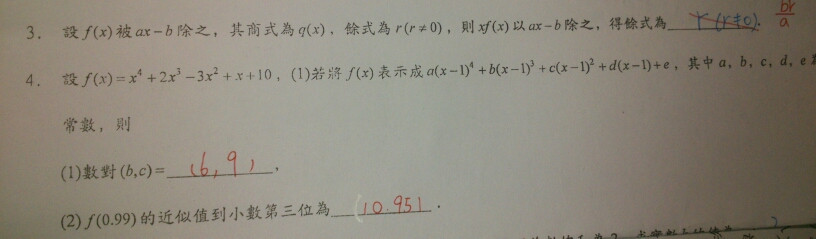 3. 設 f(x) 被 ax-b 除之，其商式為 q(x)，餘式為 r(r≠0)，則 xf(x) 以 ax-b 除之，得餘式為 r(r≠0). br/a
4. 設 f(x)=x⁴+2x³-3x²+x+10，(1)若將 f(x) 表示成 a(x-1)⁴+b(x-1)³+c(x-1)²+d(x-1)+e，其中 a, b, c, d, e
常數，則
(1)數對 (b,c)= (6, 9)，
(2) f(0.99) 的近似值到小數第三位為 10.951．